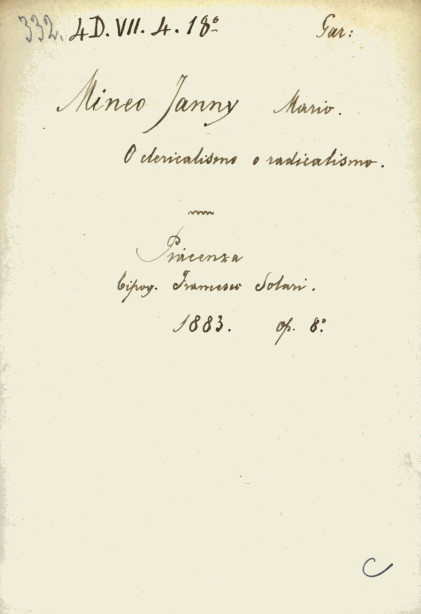 332. 4D. VII. 4. 18° Gar:
Mineo Janny Mario.
O clericalismo o radicalismo.
Piacenza
tipog. Francesco Solari.
1883. op. 8°
C